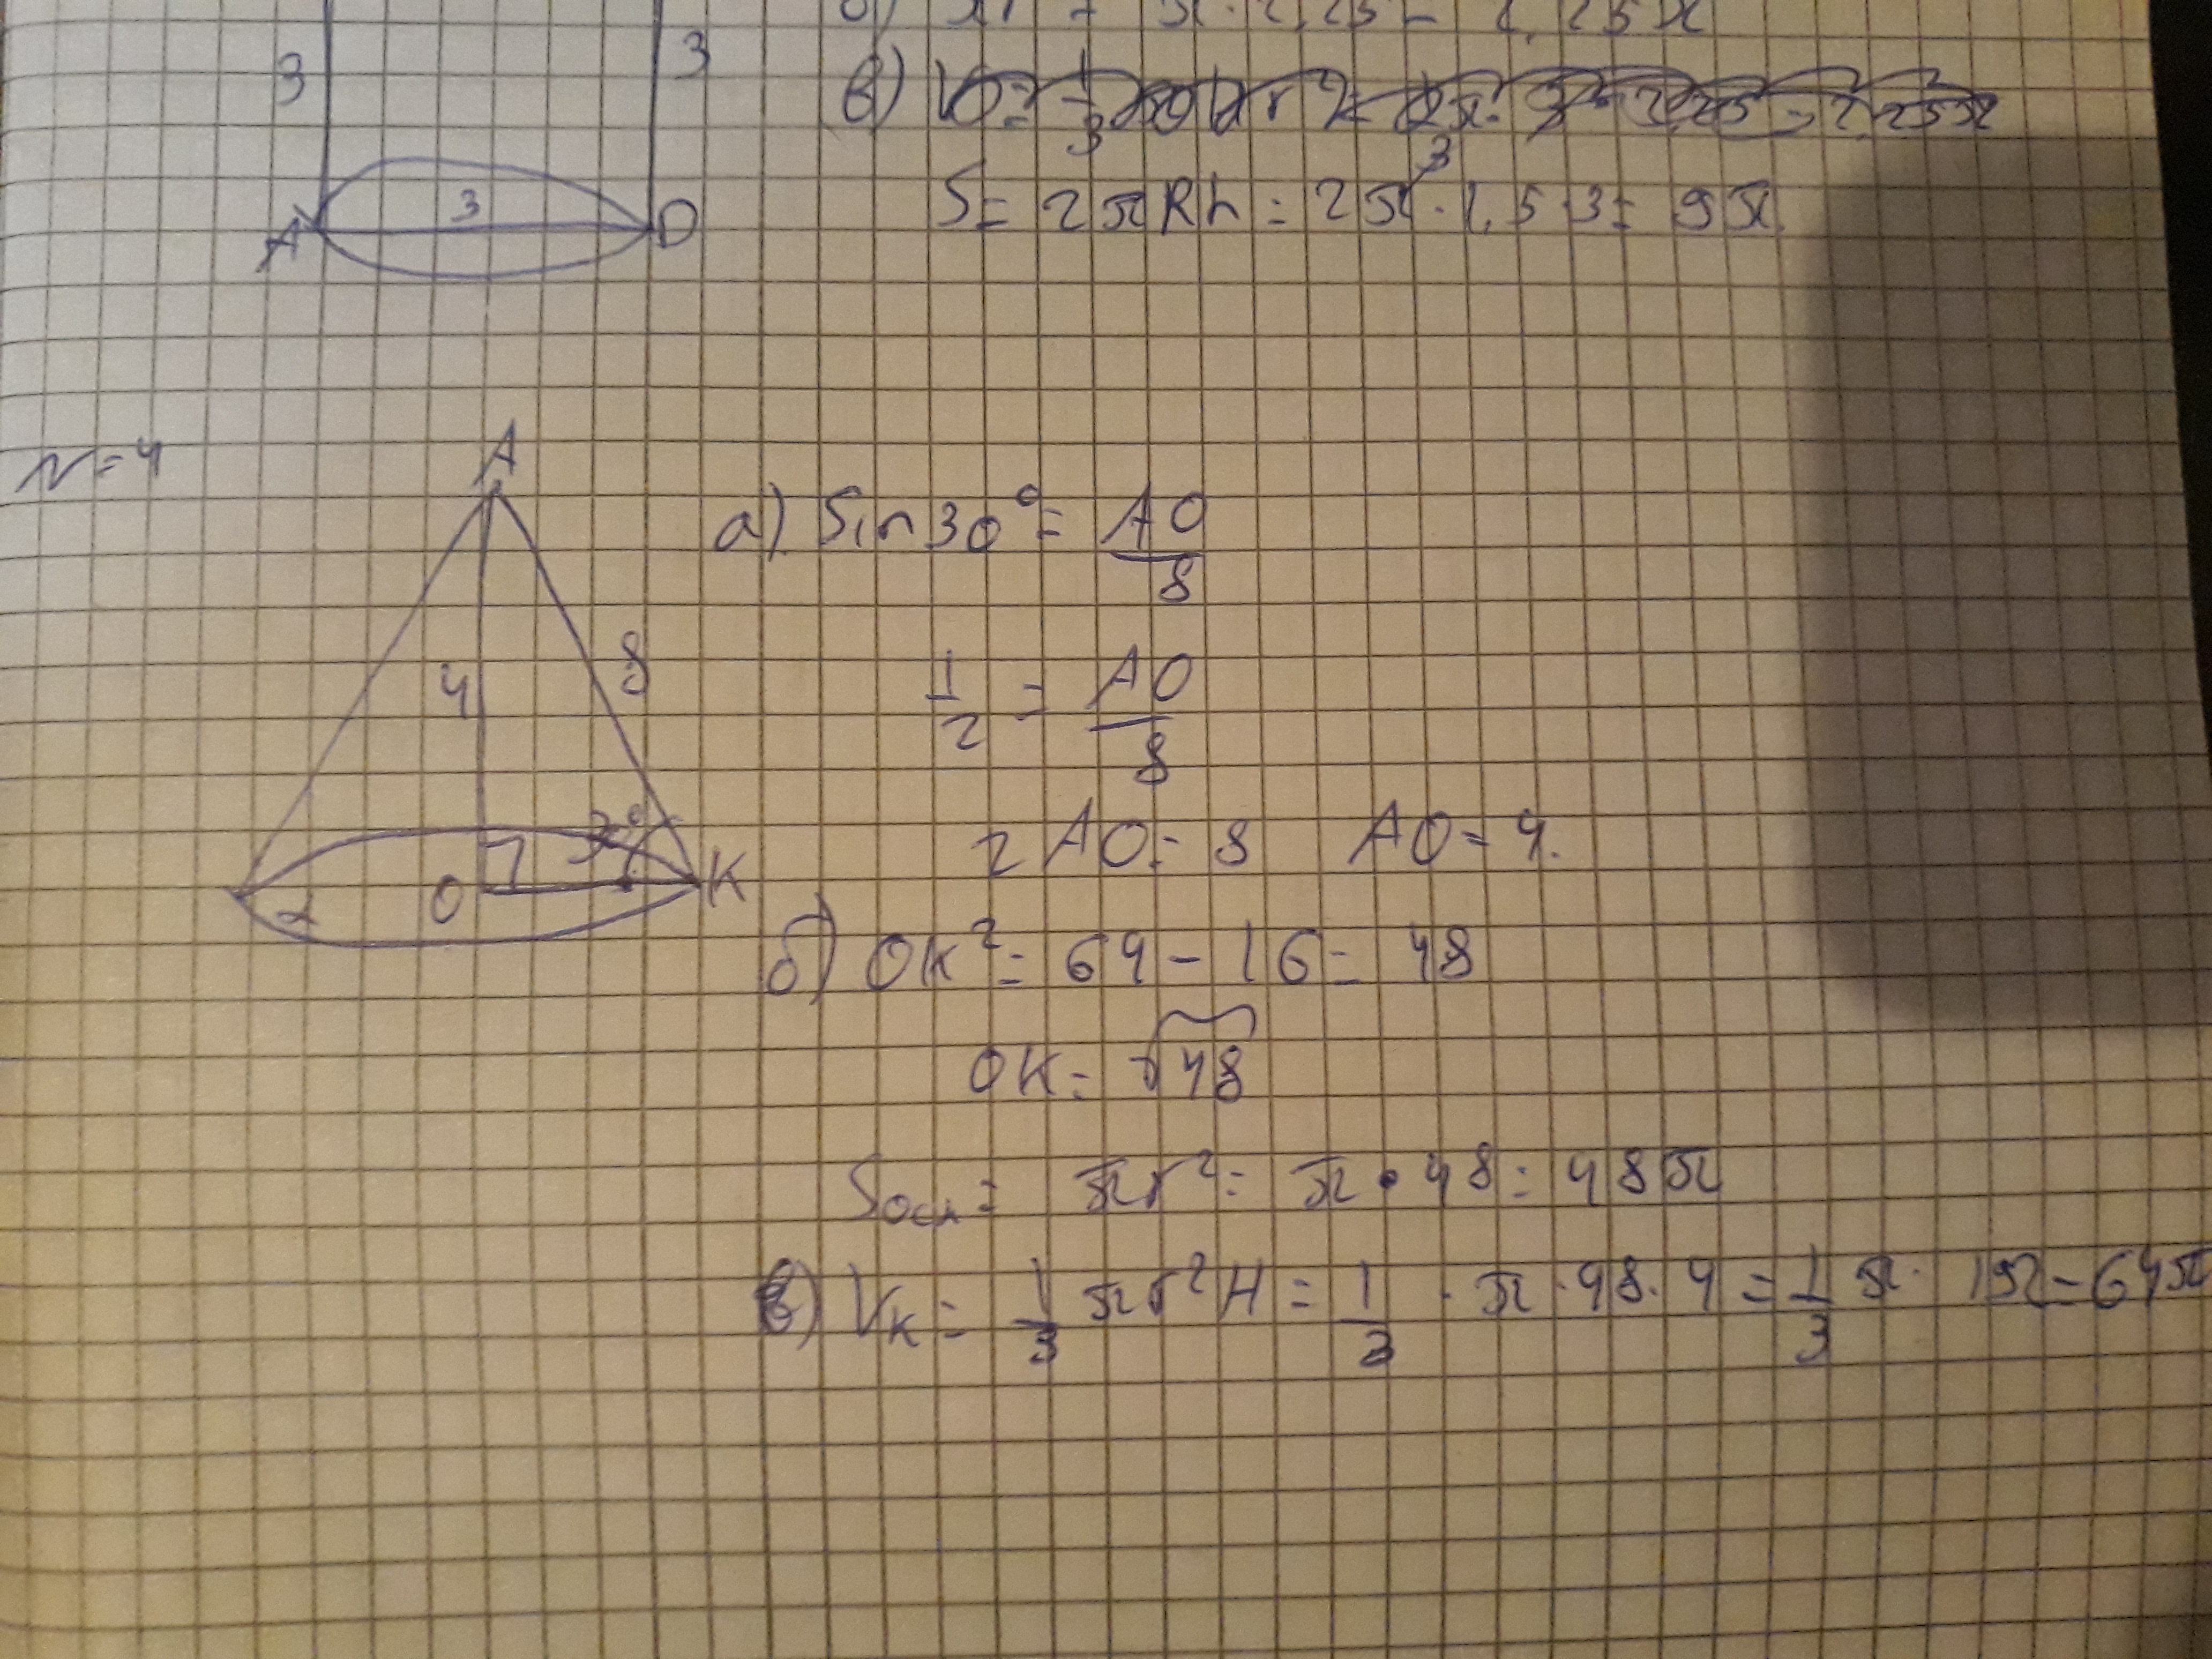 3 3
в)
S = 2πRh = 2π · 1,5 · 3 = 9π
3
A D
N=4
A
а) Sin 30° = AO/8
4 8
1/2 = AO/8
30°
2 AO = 8 AO = 4.
O K
б) OK² = 64 - 16 = 48
OK = √48
Sосн = πr² = π · 48 = 48π
в) Vк = 1/3 πr²H = 1/3 · π · 48 · 4 = 1/3 π · 192 = 64π